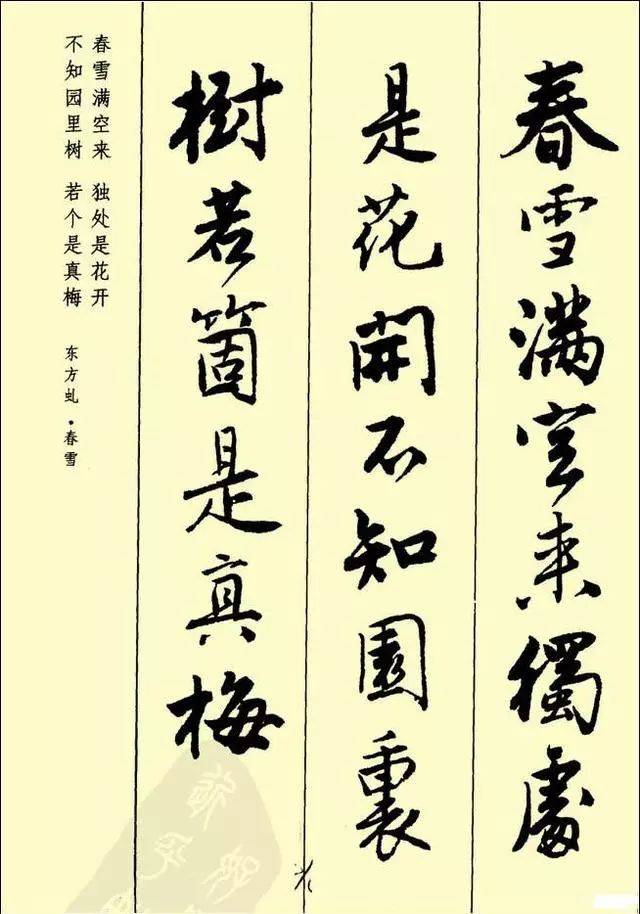 春雪滿空来獨處
是花開不知園裏
樹若箇是真梅
春雪满空来 独处是花开
不知园里树 若个是真梅
东方虬·春雪